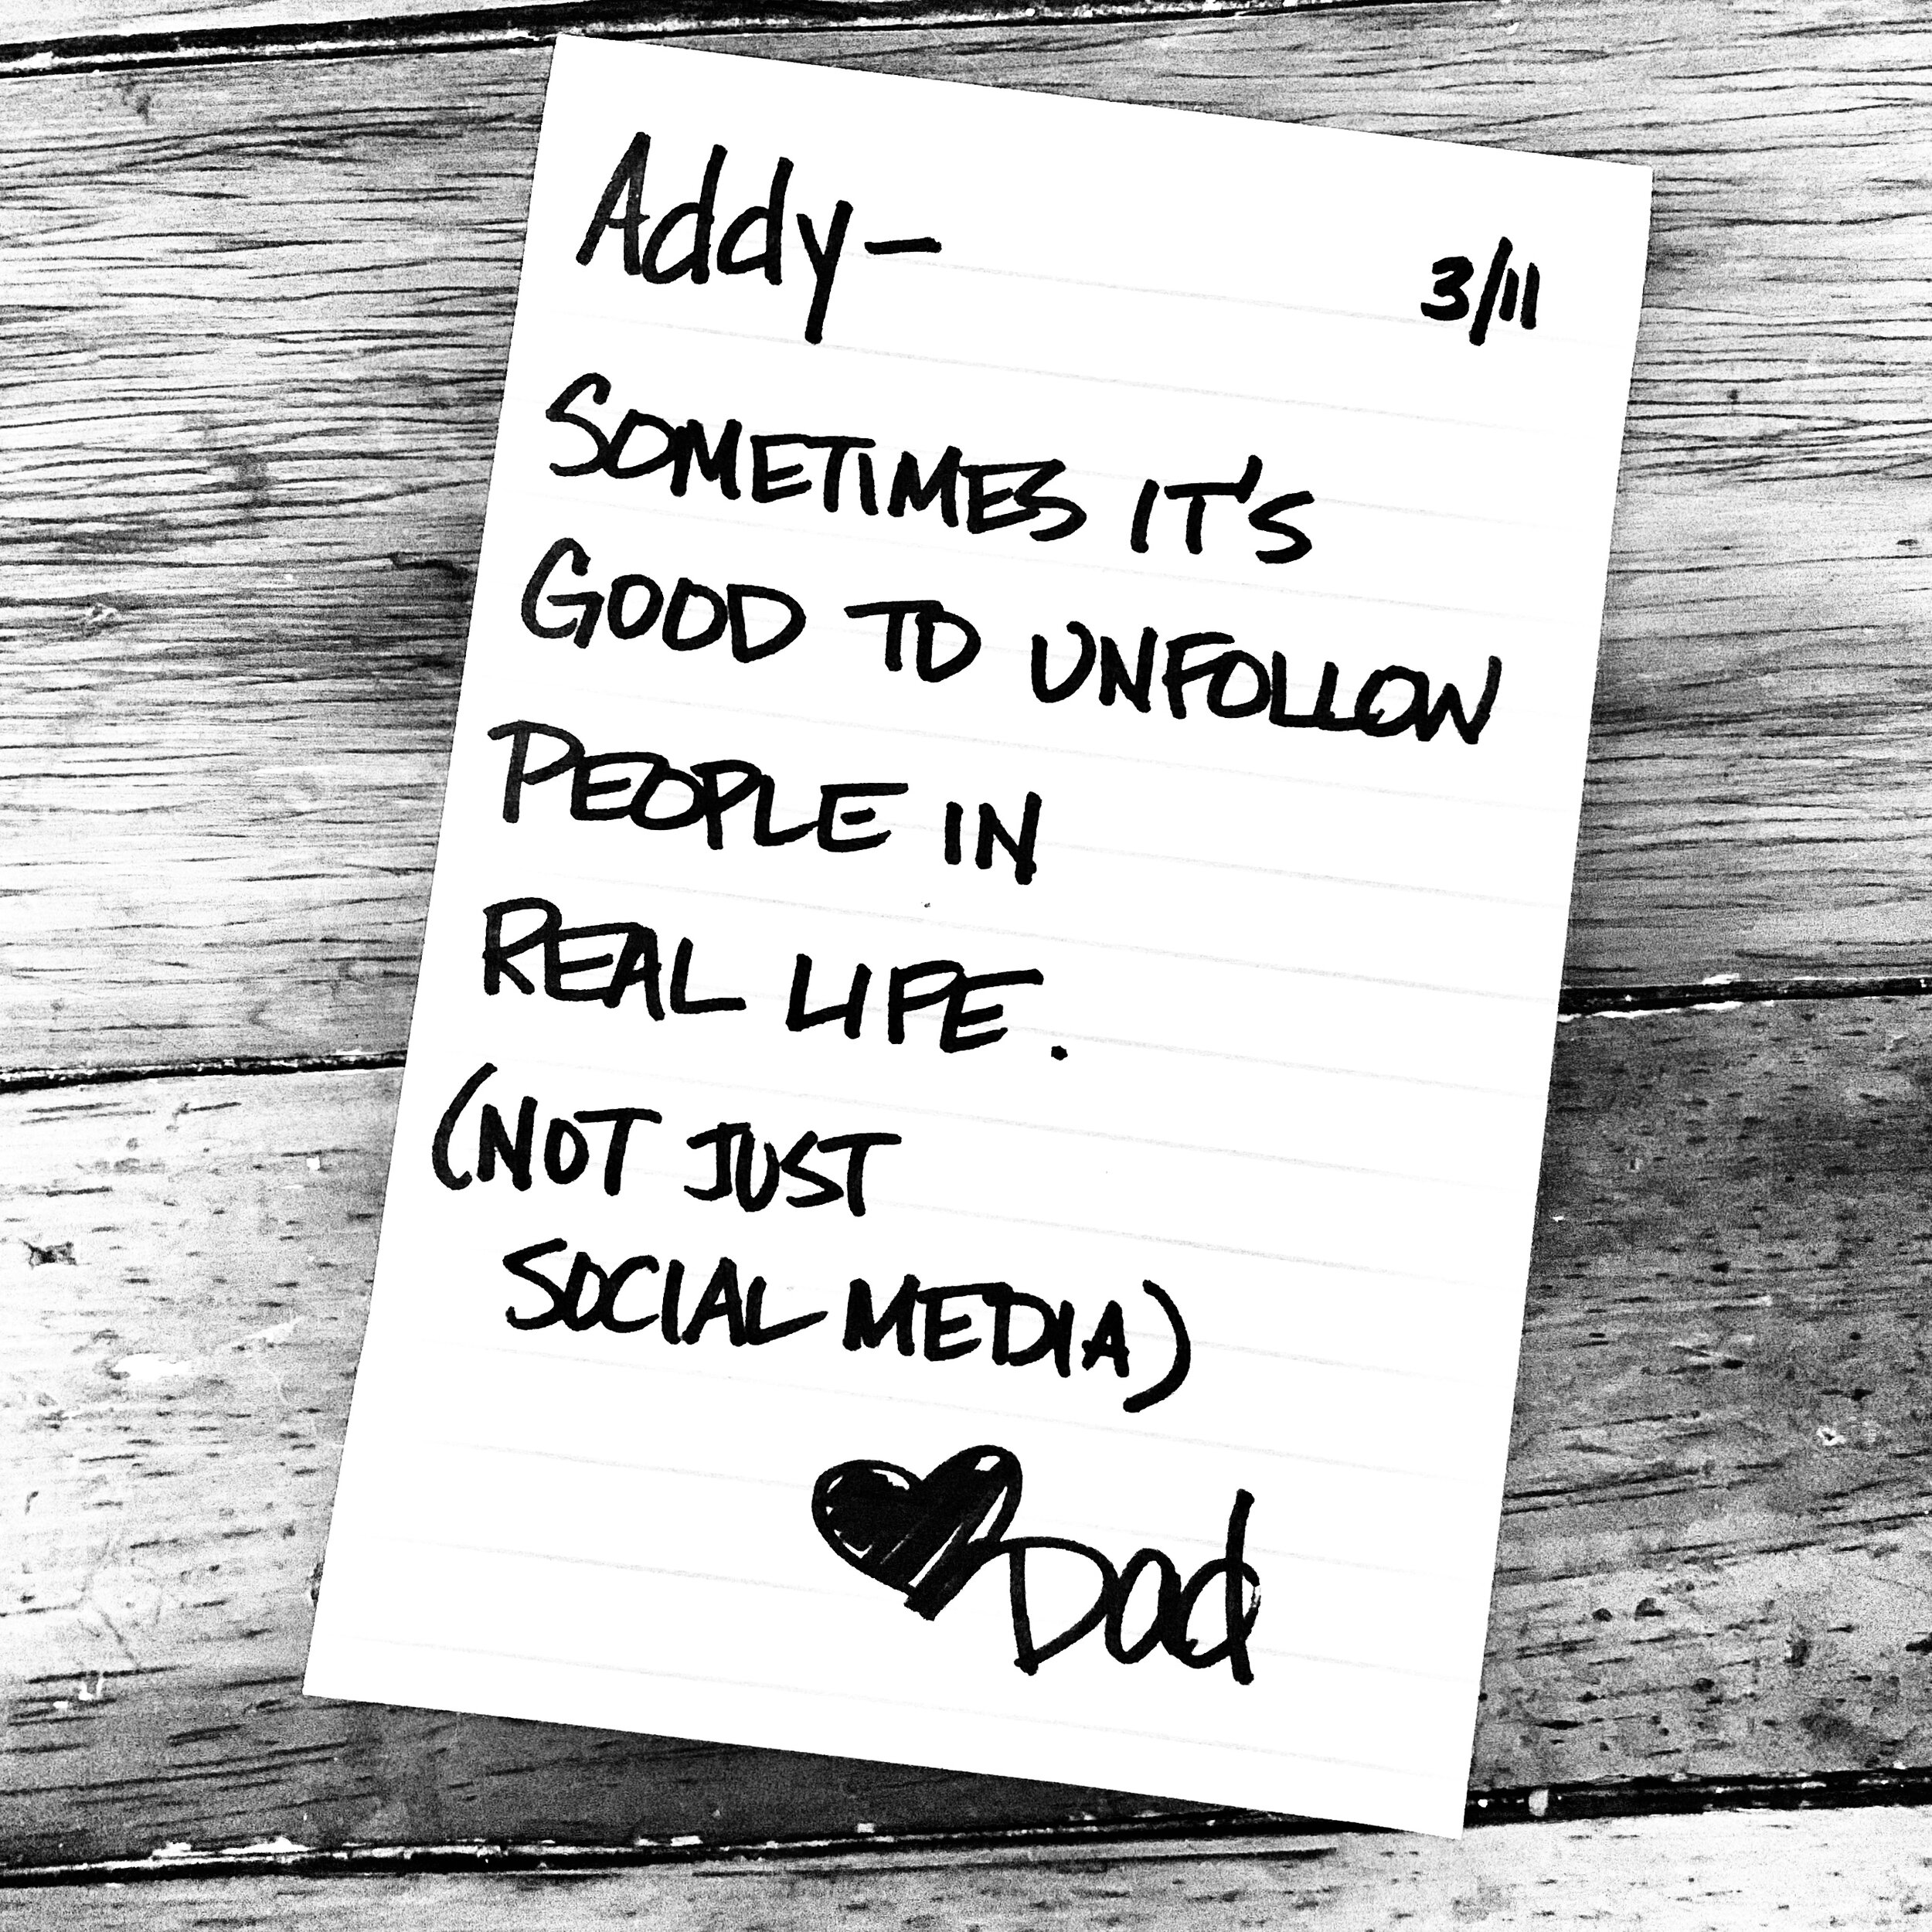 Addy-
3/11
SOMETIMES IT'S
GOOD TO UNFOLLOW
PEOPLE IN
REAL LIFE.
(NOT JUST
SOCIAL MEDIA)
Dad